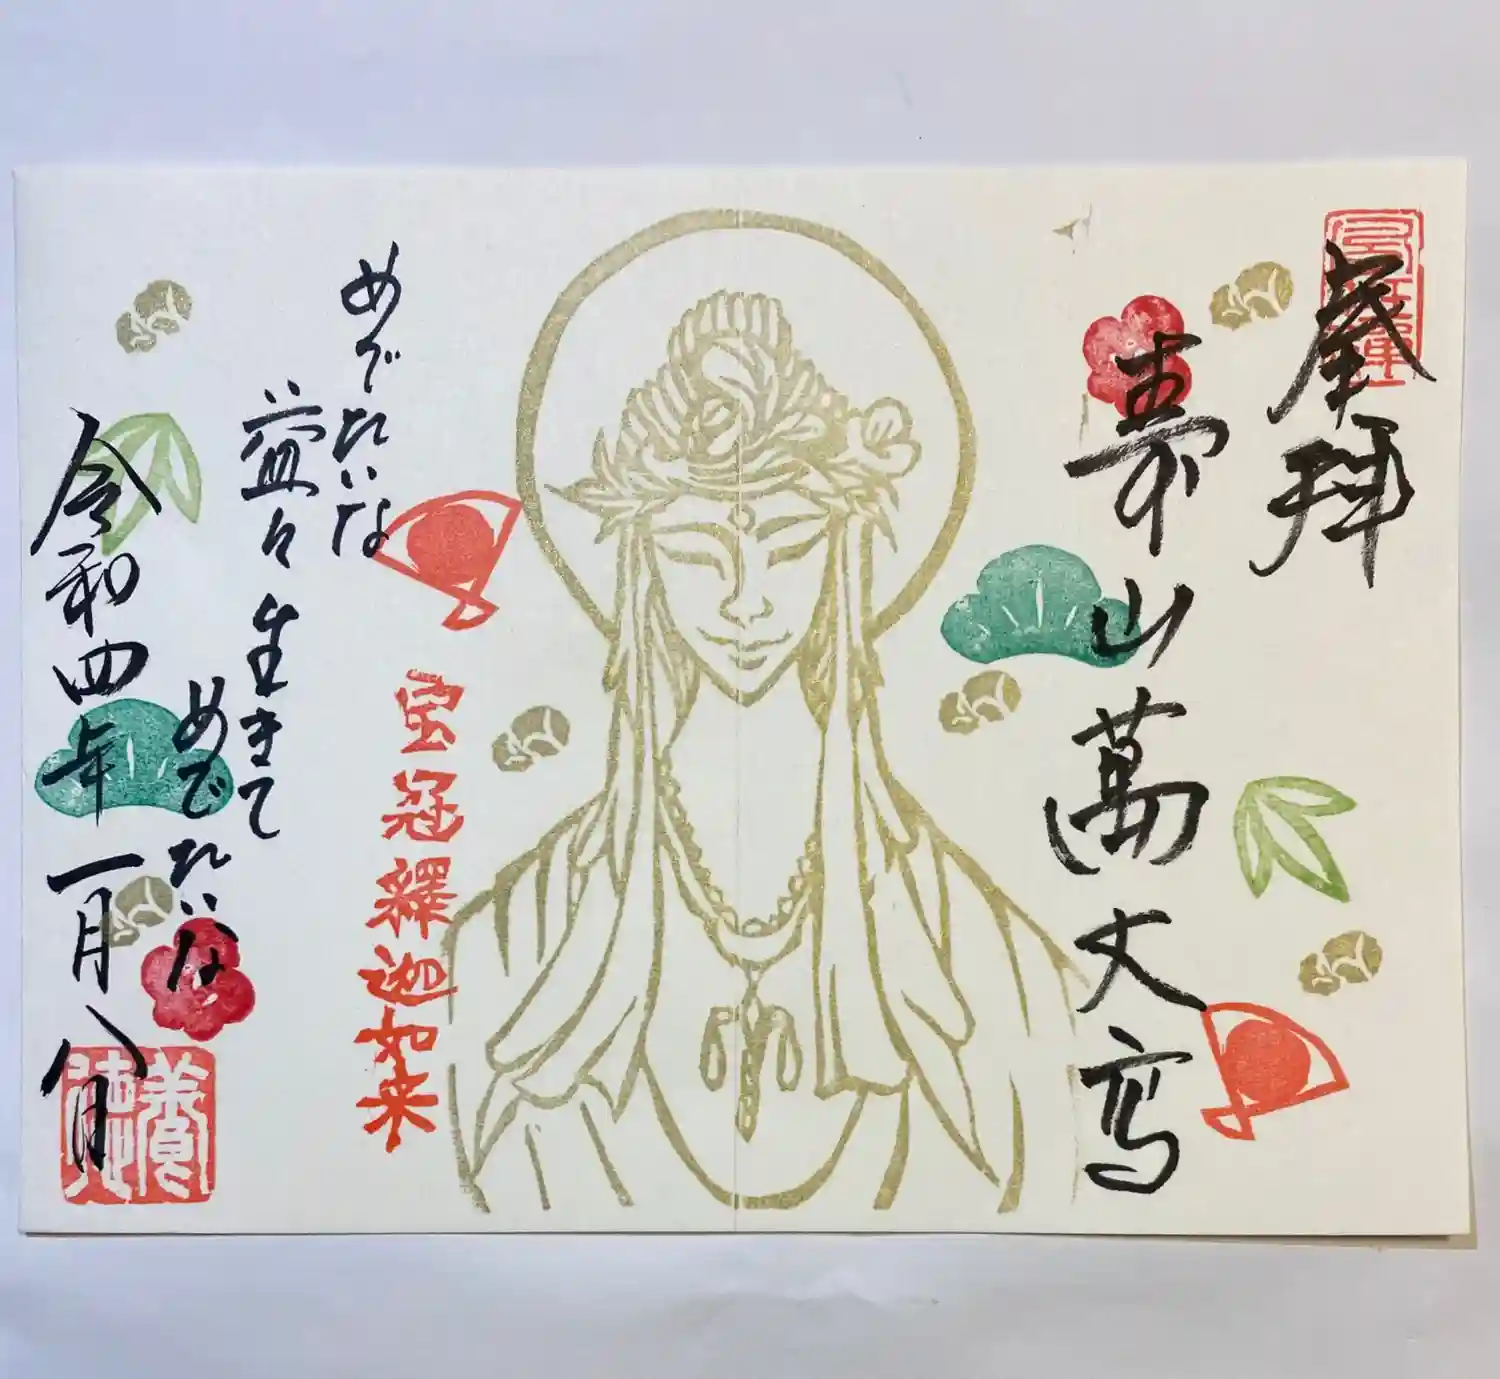 奉拝
寿山萬丈高
宝冠釋迦如来
めでたいな
益々生きて
めでたいな
令和四年一月八日
養徳